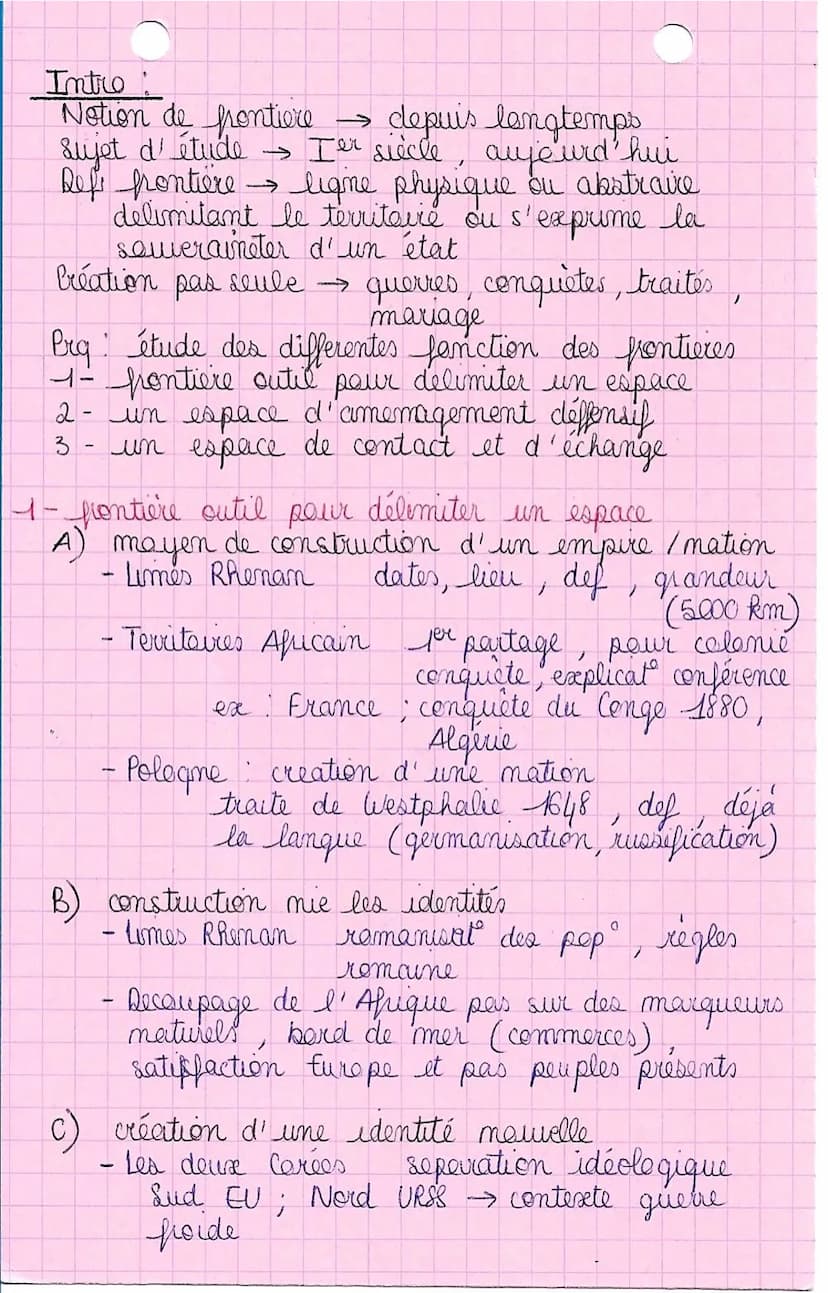 Intro :
Notion de frontière → depuis longtemps
Sujet d'étude → Ier siècle, aujourd'hui
Def frontière → ligne physique ou abstraire
delimitant le territoire ou s'exprime la
souveraineter d'un état
Création pas seule → guerres, conquêtes, traités,
mariage
Prg : étude des differentes fonction des frontieres
1- frontière outil pour delimiter un espace
2 - un espace d'amemagement déffensif
3 - un espace de contact et d'échange
1- frontière outil pour délimiter un espace
A) moyen de construction d'un empire / nation
- Limes Rhenam dates, lieu, def, grandeur
(5000 km)
- Territoires Africain 1er partage, pour colonie
conquête, explicat° conférence
ex : France ; conquête du Congo 1880,
Algérie
- Pologne : creation d'une nation
traite de Westphalie 1648, def, déjà
la langue (germanisation, russification)
B) construction nie les identités
- Limes Rhenan romanisat° des pop°, règles
romaine
- Decoupage de l'Afrique pas sur des marqueurs
naturels, bord de mer (commerces),
satisfaction Europe et pas peuples présents
C) création d'une identité nouvelle
- Les deux Corées separation idéologique
Sud EU ; Nord URSS → contexte guerre
froide